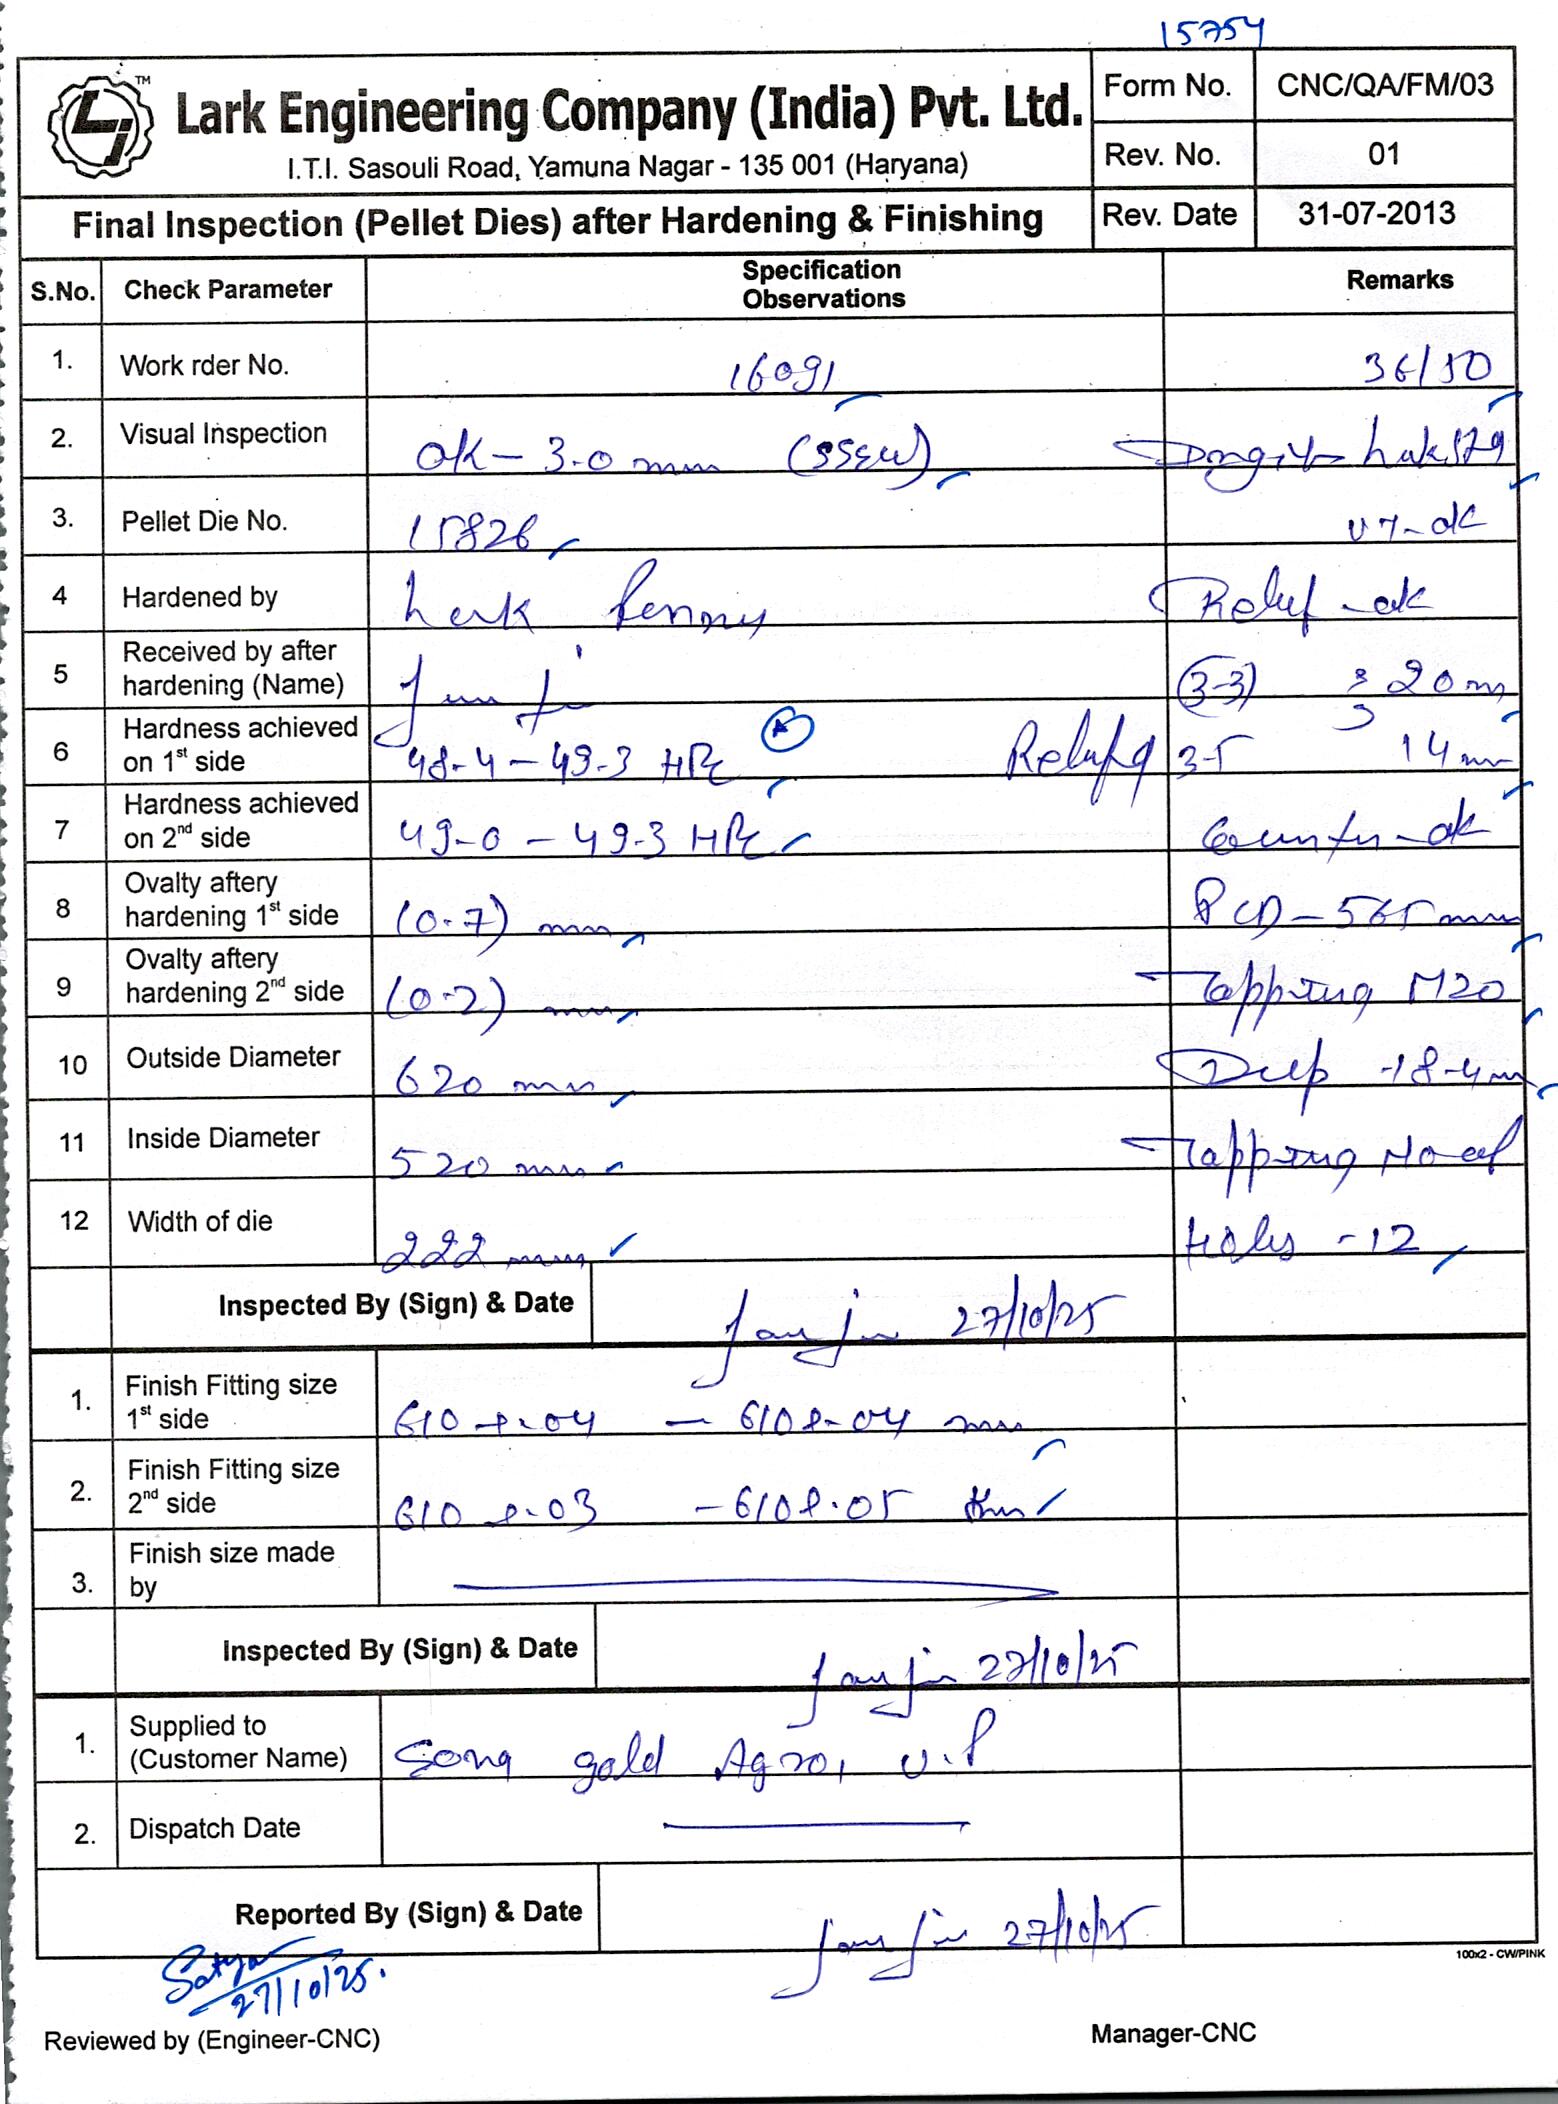 15754
Lark Engineering Company (India) Pvt. Ltd.
TM
I.T.I. Sasouli Road, Yamuna Nagar - 135 001 (Haryana)
Form No. CNC/QA/FM/03
Rev. No. 01
Final Inspection (Pellet Dies) after Hardening & Finishing
Rev. Date 31-07-2013
S.No. Check Parameter Specification Observations Remarks
1. Work rder No. 16091 36/50
2. Visual Inspection OK - 3.0 mm
3. Pellet Die No. 15826 ok
4 Hardened by Relief - ok
5 Received by after hardening (Name) (3-3) 20 m
6 Hardness achieved on 1st side 48-4 - 49-3 HRc 3-5 14 mm
7 Hardness achieved on 2nd side 49-0 - 49-3 HRc Counter - ok
8 Ovalty aftery hardening 1st side (0-7) mm PCD - 565 mm
9 Ovalty aftery hardening 2nd side (0-2) mm Tapping M20
10 Outside Diameter 620 mm Deep
11 Inside Diameter 520 mm Tapping No of
12 Width of die 222 mm Holes - 12
Inspected By (Sign) & Date 27/10/25
1. Finish Fitting size 1st side 610
2. Finish Fitting size 2nd side 610
3. Finish size made by
Inspected By (Sign) & Date 27/10/25
1. Supplied to (Customer Name) gold Agro, U.P
2. Dispatch Date
Reported By (Sign) & Date 27/10/25
100x2 - CW/PINK
Satya
27/10/25.
Reviewed by (Engineer-CNC)
Manager-CNC